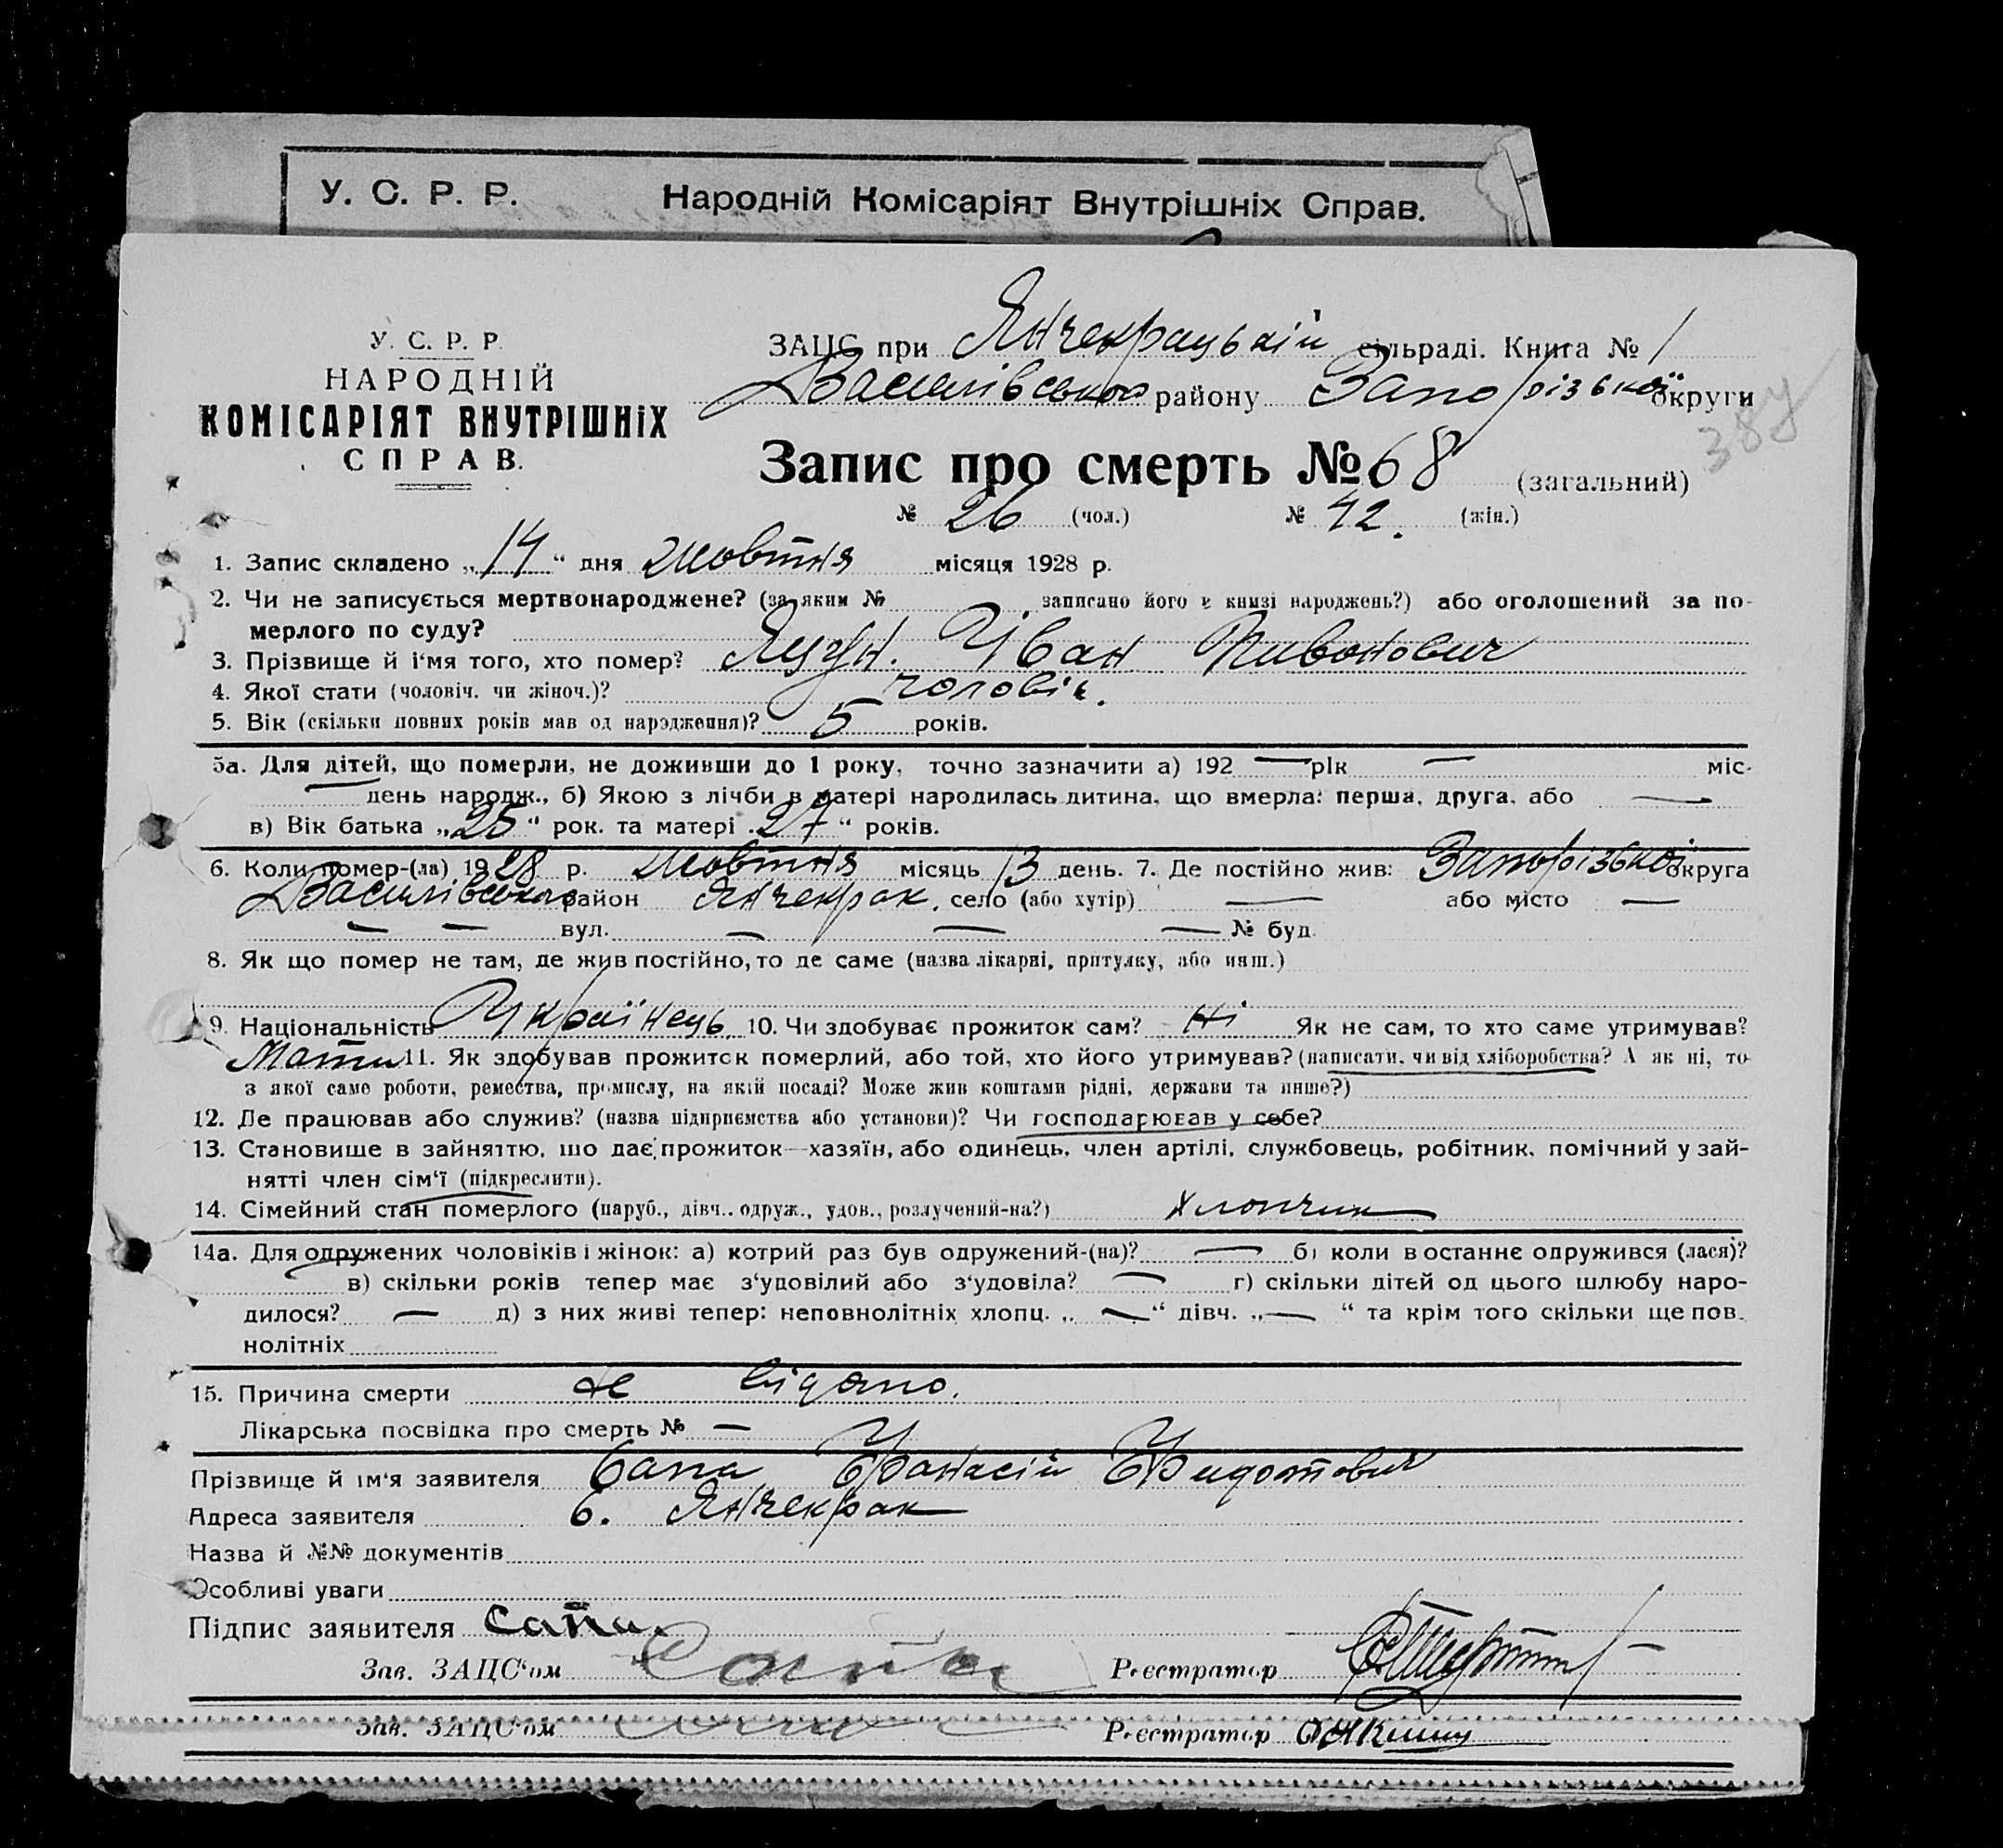 У. С. Р. Р. Народній Комісаріят Внутрішніх Справ.
У. С. Р. Р.
НАРОДНІЙ
КОМІСАРІЯТ ВНУТРІШНІХ
СПРАВ.
ЗАЦС при Янчекрацькій сільраді. Книга № 1
Василівського району Запорізької округи
384
Запис про смерть № 68 (загальний)
№ 26 (чол.) № 42. (жін.)
1. Запис складено „14“ дня жовтня місяця 1928 р.
2. Чи не записується мертвонароджене? (за яким № записано його в книзі народжень?) або оголошений за по-
мерлого по суду?
3. Прізвище й і‘мя того, хто помер? Іван
4. Якої стати (чоловіч. чи жіноч.)? чоловік.
5. Вік (скільки повних років мав од народження)? 5 років.
5а. Для дітей, що померли, не доживши до 1 року, точно зазначити а) 192 — рік — міс-
— день народж., б) Якою з лічби в матері народилась дитина, що вмерла: перша, друга, або —
в) Вік батька „25“ рок. та матері „27“ років.
6. Коли помер-(ла) 1928 р. жовтня місяць 13 день. 7. Де постійно жив: Запорізької округа
Василівського район Янчекрак. село (або хутір) — або місто —
— — вул. — — — № буд.
8. Як що помер не там, де жив постійно, то де саме (назва лікарні, притулку, або инш.)
9. Національність Українець. 10. Чи здобуває прожиток сам? ні Як не сам, то хто саме утримував?
Мати 11. Як здобував прожиток померлий, або той, хто його утримував? (написати, чи від хліборобства? А як ні, то
з якої саме роботи, ремества, промислу, на якій посаді? Може жив коштами рідні, держави та инше?)
12. Де працював або служив? (назва підприємства або установи)? Чи господарював у себе?
13. Становище в зайняттю, що дає прожиток—хазяїн, або одинець, член артілі, службовець, робітник, помічний у зай-
нятті член сім‘ї (підкреслити).
14. Сімейний стан померлого (паруб., дівч., одруж., удов., розлучений-на?) хлопчик
14а. Для одружених чоловіків і жінок: а) котрий раз був одружений-(на)? — б) коли востаннє одружився (лася)?
в) скільки років тепер має з‘удовілий або з‘удовіла? — г) скільки дітей од цього шлюбу наро-
дилося? — д) з них живі тепер: неповнолітніх хлопц. „—“ дівч. „—“ та крім того скільки ще пов.
нолітніх
15. Причина смерти не відомо.
Лікарська посвідка про смерть № —
Прізвище й ім‘я заявителя Сапа Афанасій Федотович
Адреса заявителя с. Янчекрак
Назва й №№ документів
Особливі уваги
Підпис заявителя Сапа.
Зав. ЗАЦС‘ом Реєстратор
Зав. ЗАЦС‘ом Реєстратор